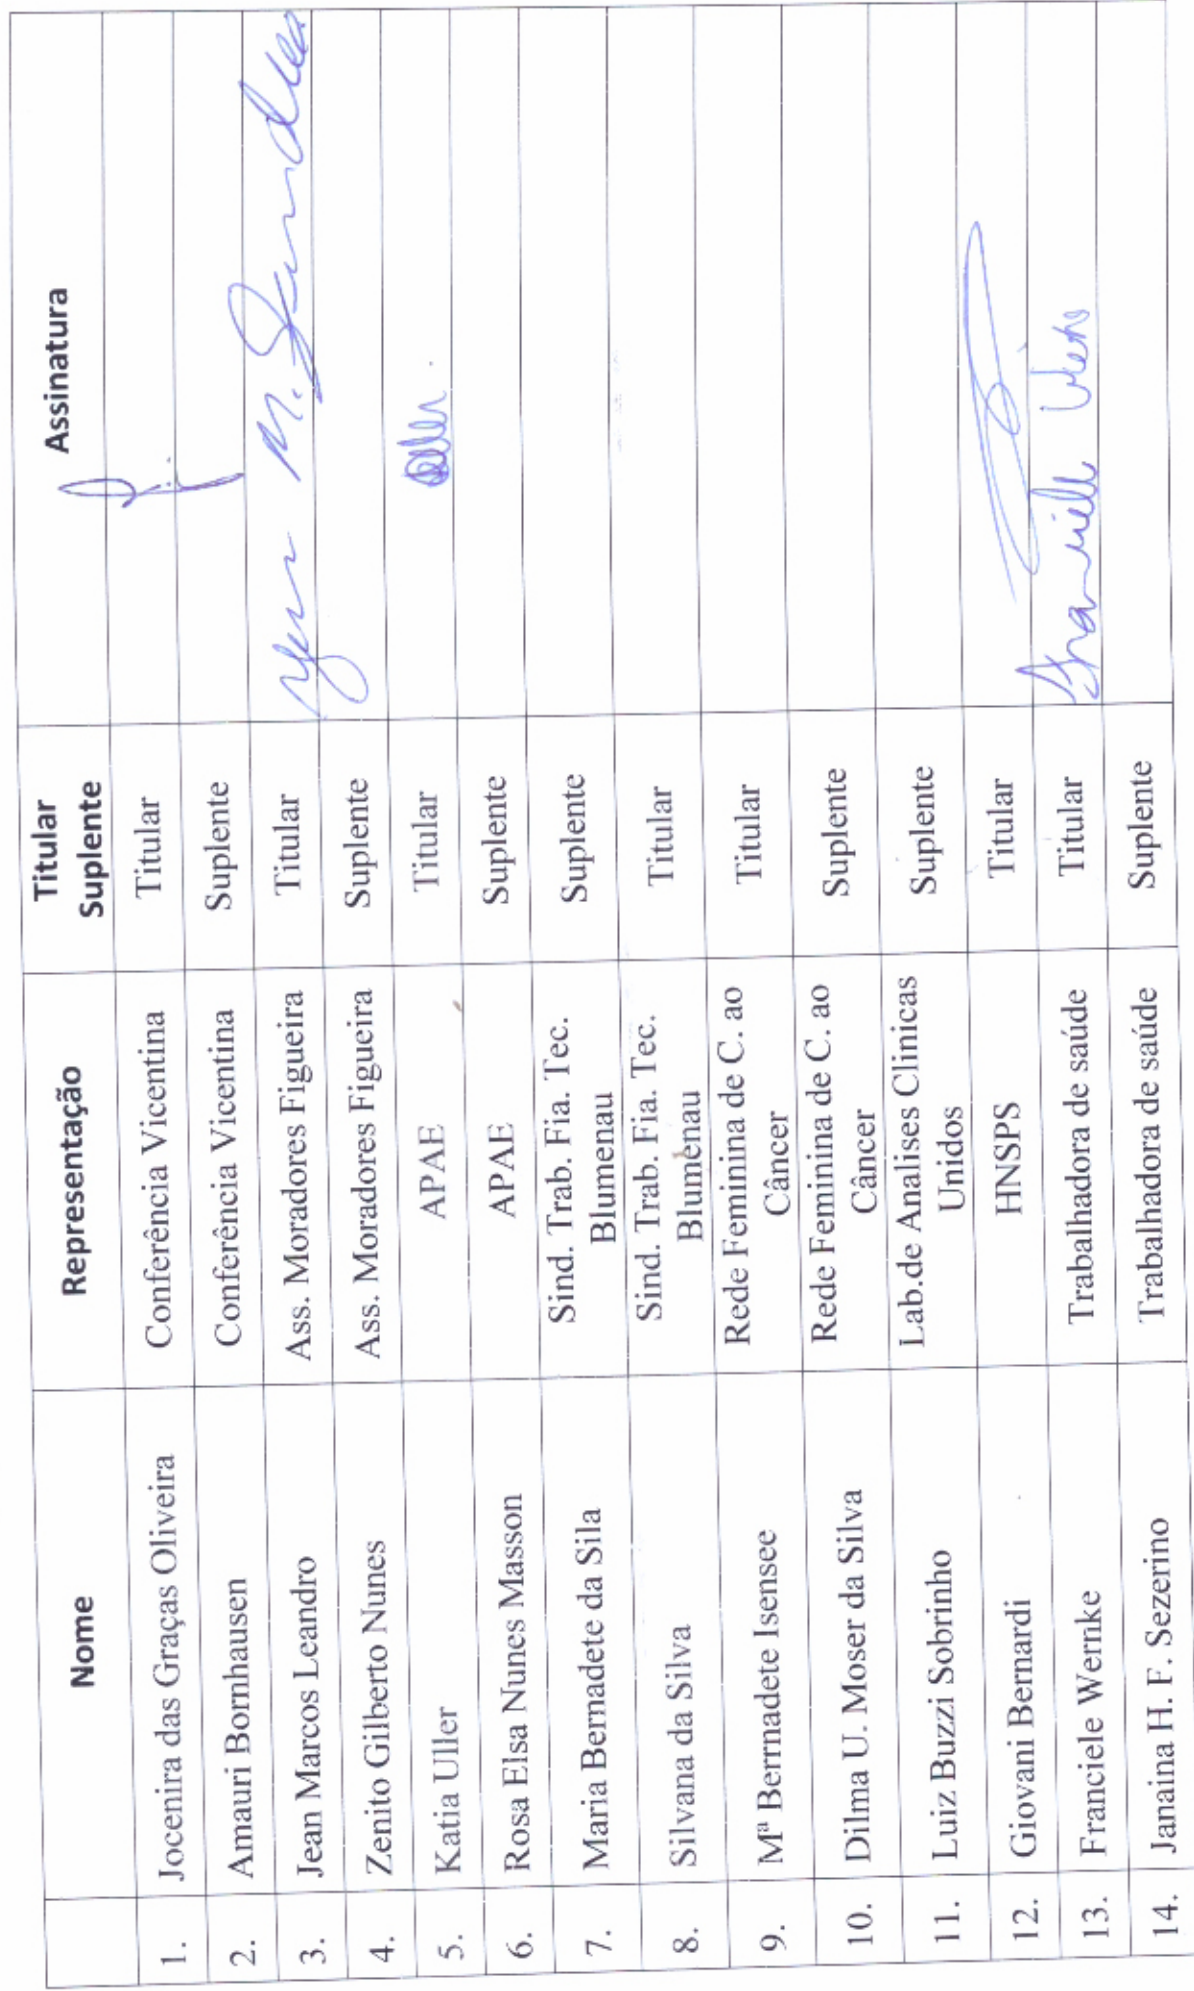 Nome Representação Titular Suplente Assinatura
1. Jocenira das Graças Oliveira Conferência Vicentina Titular
2. Amauri Bornhausen Conferência Vicentina Suplente
3. Jean Marcos Leandro Ass. Moradores Figueira Titular
4. Zenito Gilberto Nunes Ass. Moradores Figueira Suplente
5. Katia Uller APAE Titular
6. Rosa Elsa Nunes Masson APAE Suplente
7. Maria Bernadete da Sila Sind. Trab. Fia. Tec. Blumenau Suplente
8. Silvana da Silva Sind. Trab. Fia. Tec. Blumenau Titular
9. Mª Berrnadete Isensee Rede Feminina de C. ao Câncer Titular
10. Dilma U. Moser da Silva Rede Feminina de C. ao Câncer Suplente
11. Luiz Buzzi Sobrinho Lab.de Analises Clinicas Unidos Suplente
12. Giovani Bernardi HNSPS Titular
13. Franciele Wernke Trabalhadora de saúde Titular
14. Janaina H. F. Sezerino Trabalhadora de saúde Suplente